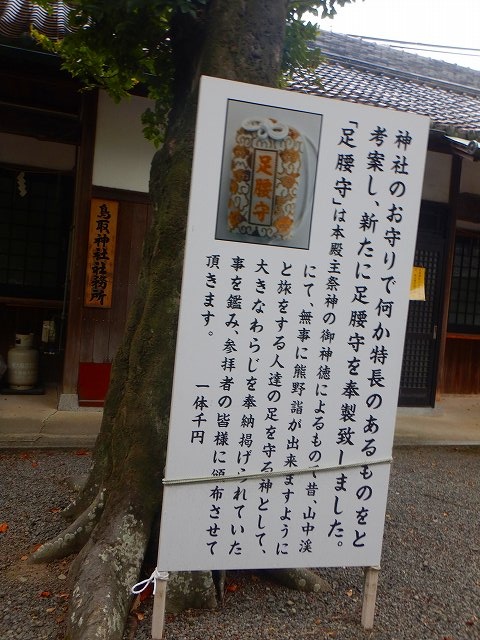 神社のお守りで何か特長のあるものをと
考案し、新たに足腰守を奉製致しました。
「足腰守」は本殿主祭神の御神徳によるもので昔、山中渓
にて、無事に熊野詣が出来ますように
と旅をする人達の足を守る神として、
大きなわらじを奉納掲げられていた
事を鑑み、参拝者の皆様に頒布させて
頂きます。
一体千円
足腰守
鳥取神社社務所